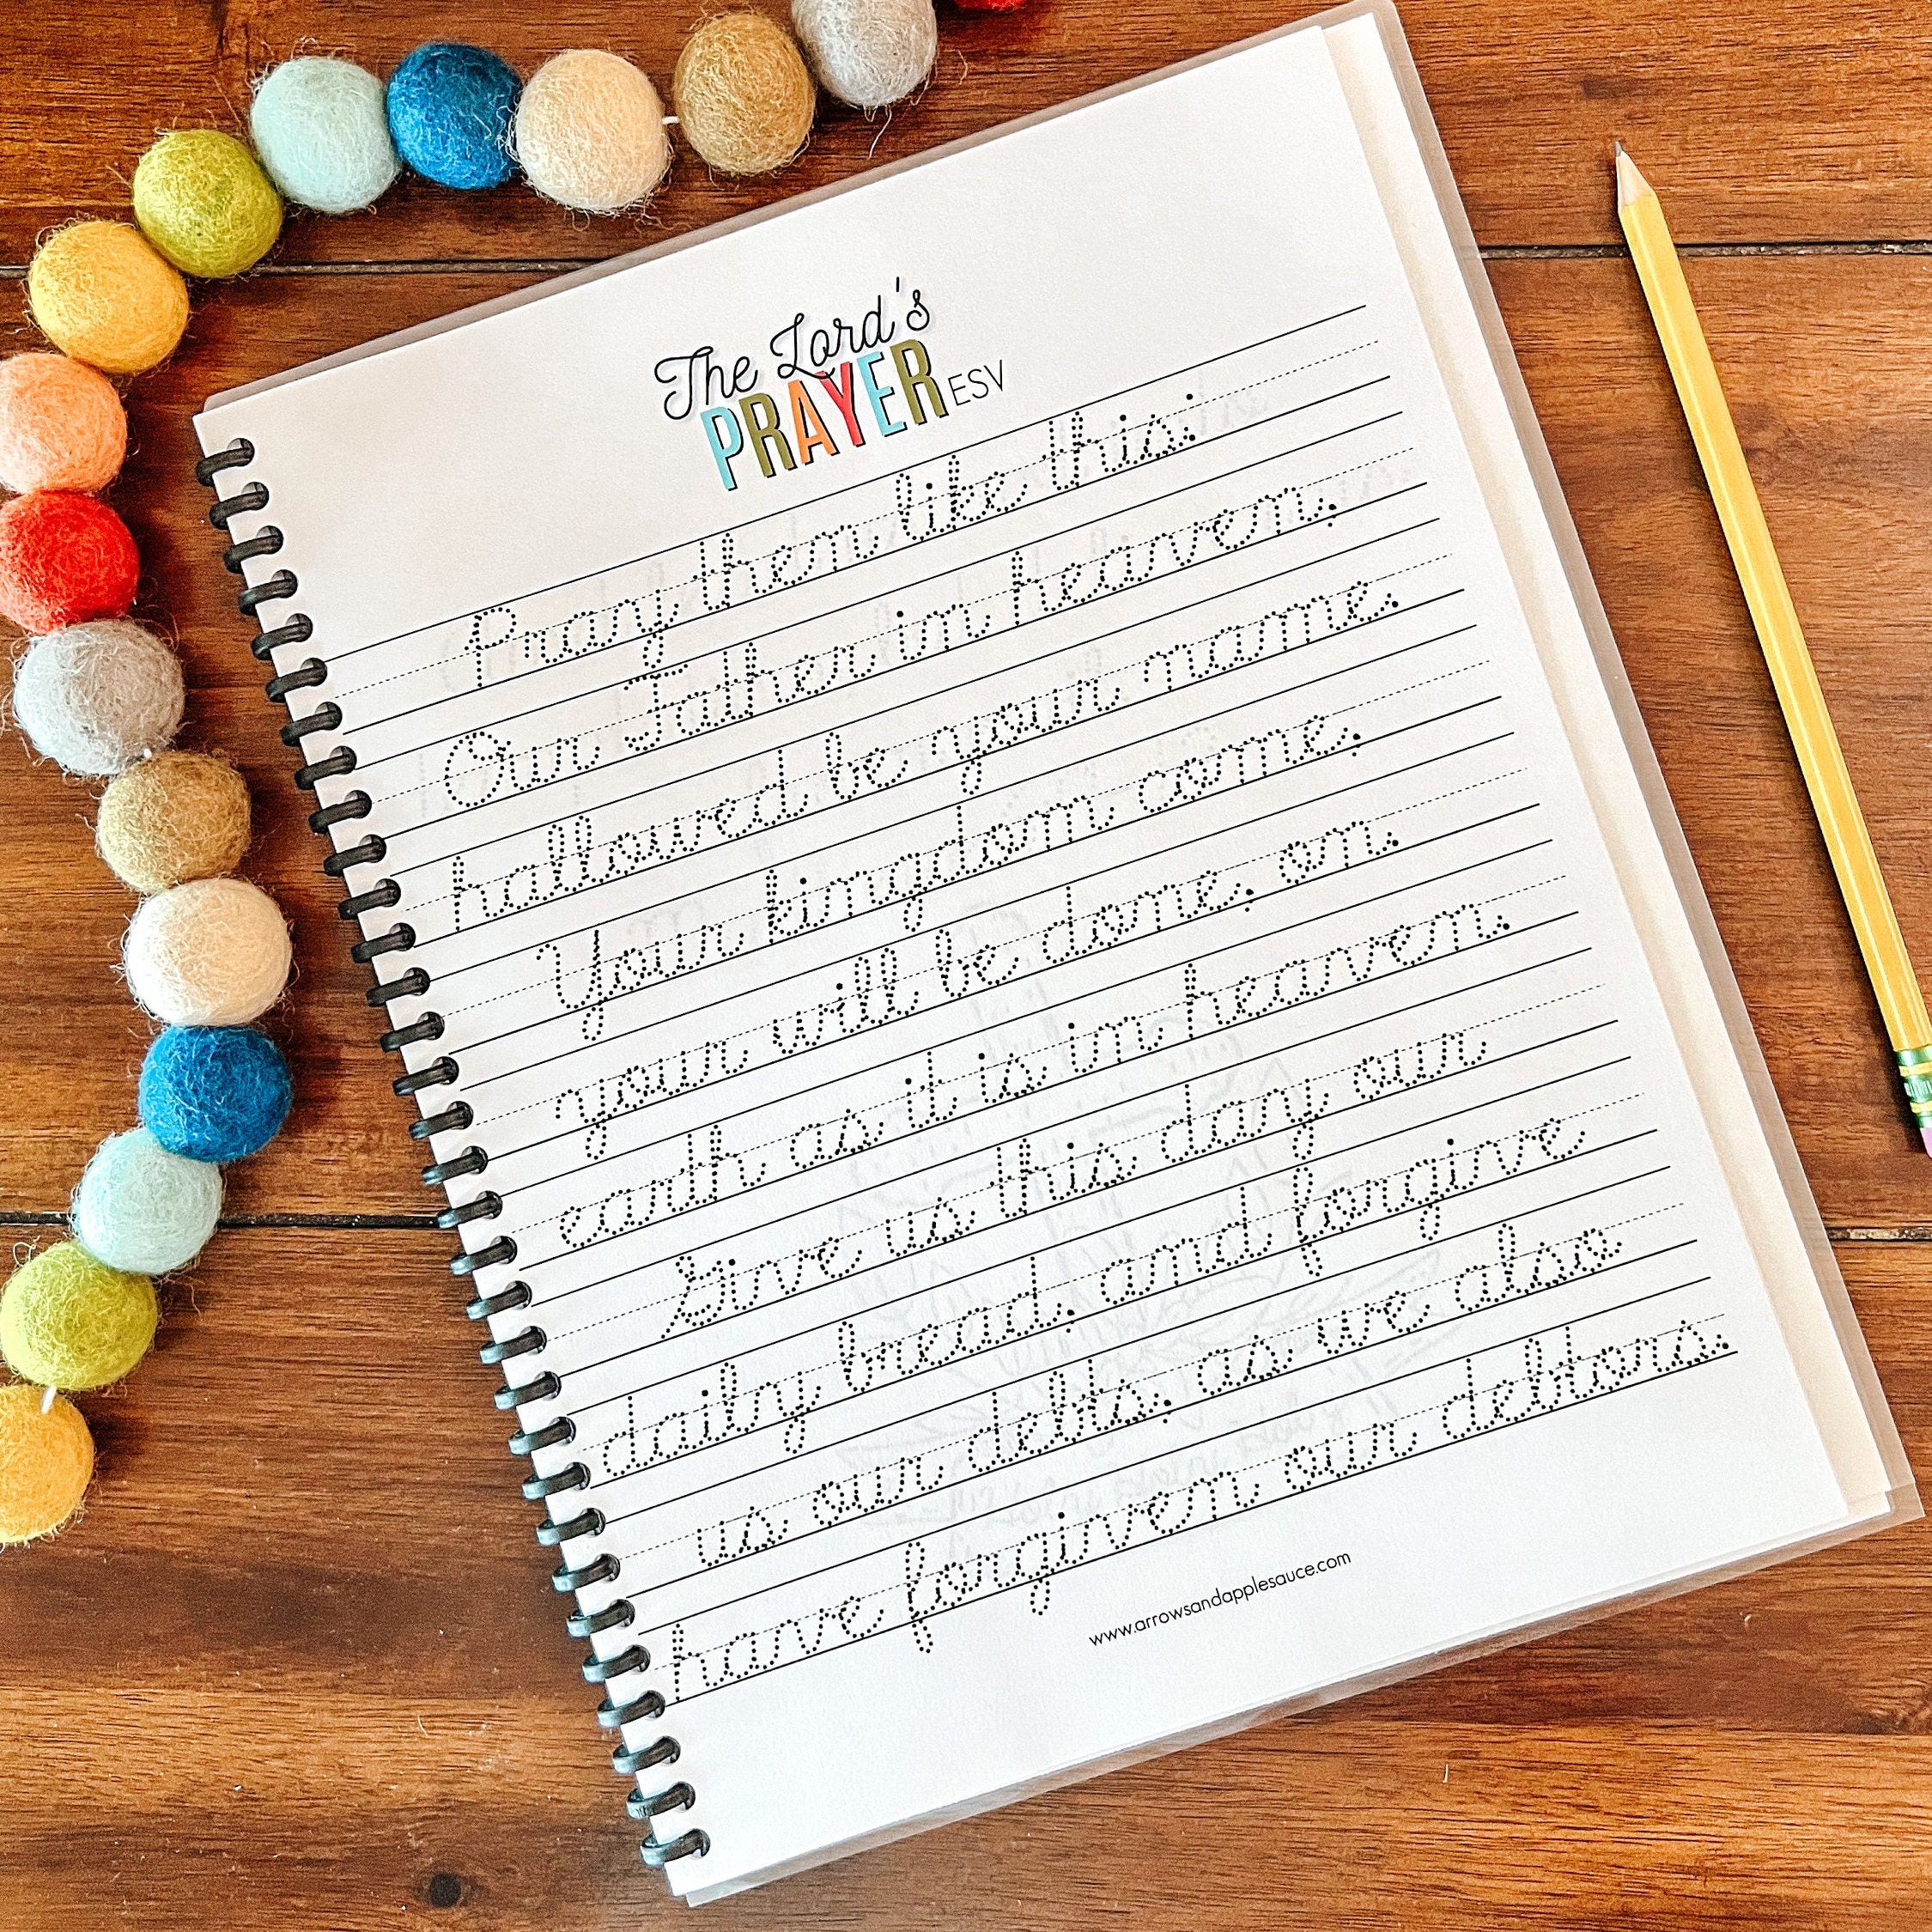 The Lord's
PRAYER ESV
Pray then like this:
Our Father in heaven,
hallowed be your name.
Your kingdom come,
your will be done, on
earth as it is in heaven.
Give us this day our
daily bread, and forgive
us our debts, as we also
have forgiven our debtors.
www.arrowsandapplesauce.com